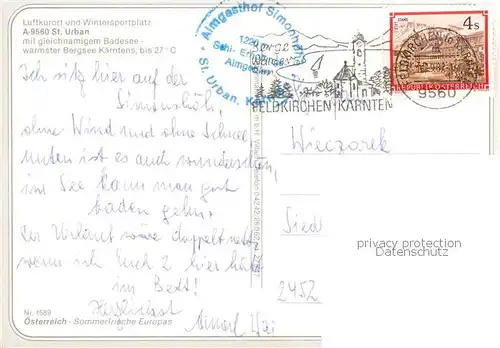 Luftkurort und Wintersportplatz
A-9560 St. Urban
mit gleichnamigem Badesee -
wärmster Bergsee Kärntens, bis 27° C
Almgasthof Simonhöhe
St. Urban, Kärnten
4s
STAMS
REPUBLIK ÖSTERREICH
9560
FELDKIRCHEN KÄRNTEN
Ich sitz hier auf der
Simonhöh,
ohne Wind und ohne Schnee
unten ist es auch wunderschön,
im See kann man gut
baden gehn,
Der Urlaub wäre doppelt nett
wenn ich Euch 2 hier hätt
im Bett!
Herzlichst
Wieczorek
Siedl
2452
privacy protection
Datenschutz
Nr. 1589
Österreich - Sommerfrische Europas